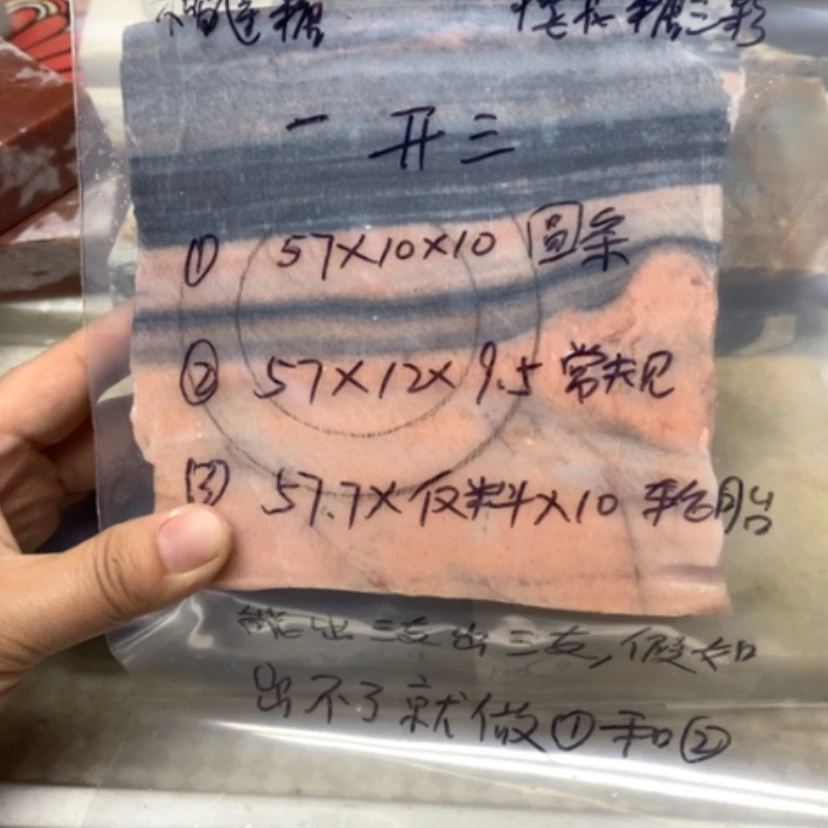 糖 糖三彩
一开三
① 57×10×10 圆条
② 57×12×9.5 常规
③ 57.7×仅料×10 轮胎
能出三支出三支,假如
出不了就做①和②